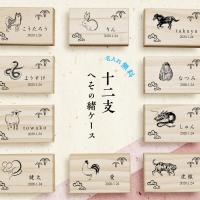 こうたろう
2020.1.24
りん
2020.1.24
takuya
2020.1.24
名入れ無料
十二支
へその緒ケース
ようすけ
2020.1.24
なつみ
2020.1.24
towako
2020.1.24
しゅん
2020.1.24
健太
2020.1.24
愛
2020.1.24
虎雅
2020.1.24